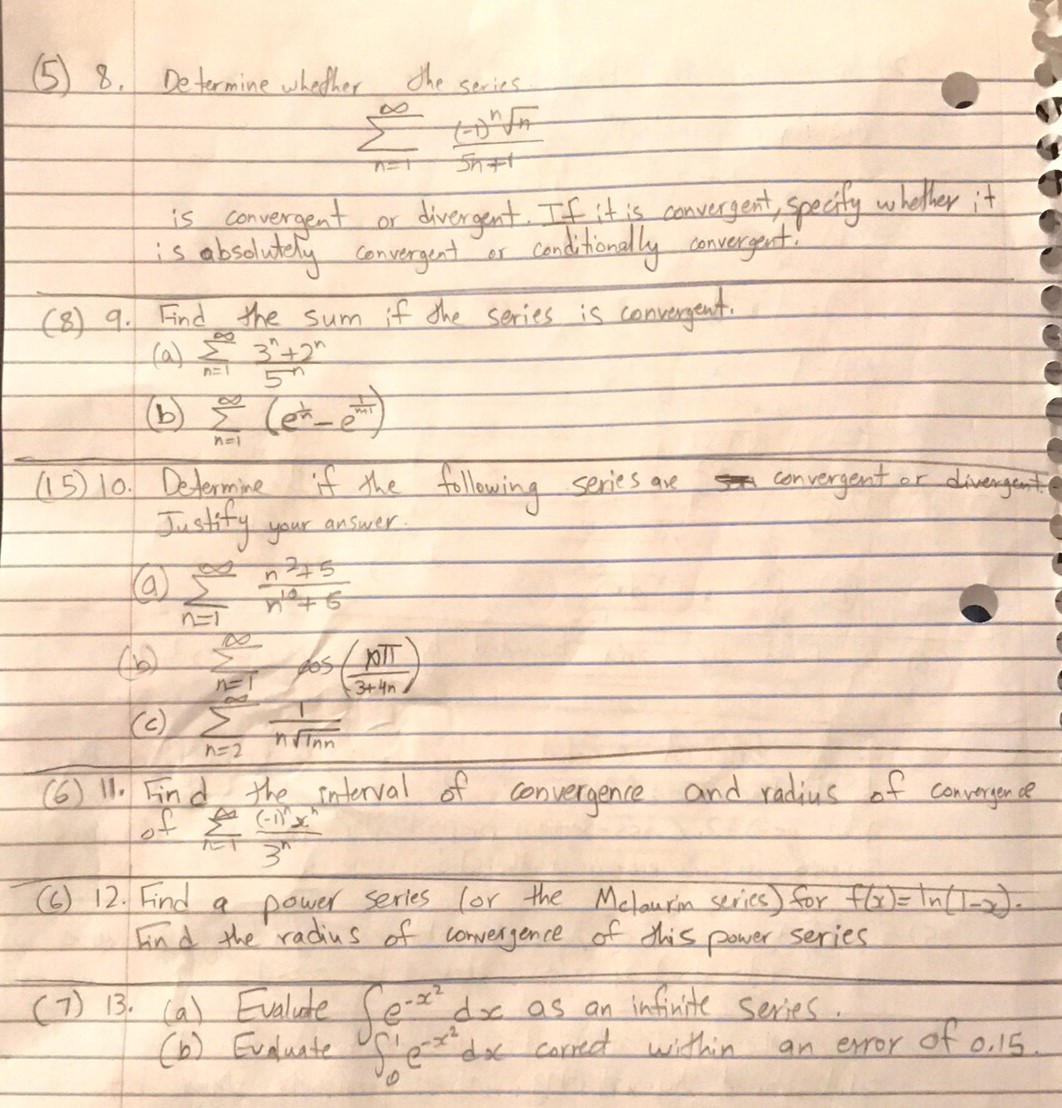 (5) 8. Determine whether the series
∑_{n=1}^{∞} (-1)^n √n / (5n+1)
is convergent or divergent. If it is convergent, specify whether it
is absolutely convergent or conditionally convergent.
(8) 9. Find the sum if the series is convergent.
(a) ∑_{n=1}^{∞} (3^n+2^n) / 5^n
(b) ∑_{n=1}^{∞} (e^{1/n} - e^{1/(n+1)})
(15) 10. Determine if the following series are convergent or divergent.
Justify your answer.
(a) ∑_{n=1}^{∞} (n^2+5) / (n^{10}+6)
(b) ∑_{n=1}^{∞} cos(nπ / (3+4n))
(c) ∑_{n=2}^{∞} 1 / (n√(ln n))
(6) 11. Find the interval of convergence and radius of convergence
of ∑_{n=1}^{∞} (-1)^n x^n / 3^n
(6) 12. Find a power series (or the Mclaurin series) for f(x)=ln(1-x).
Find the radius of convergence of this power series
(7) 13. (a) Evaluate ∫e^{-x^2} dx as an infinite series.
(b) Evaluate ∫_0^1 e^{-x^2} dx correct within an error of 0.15.